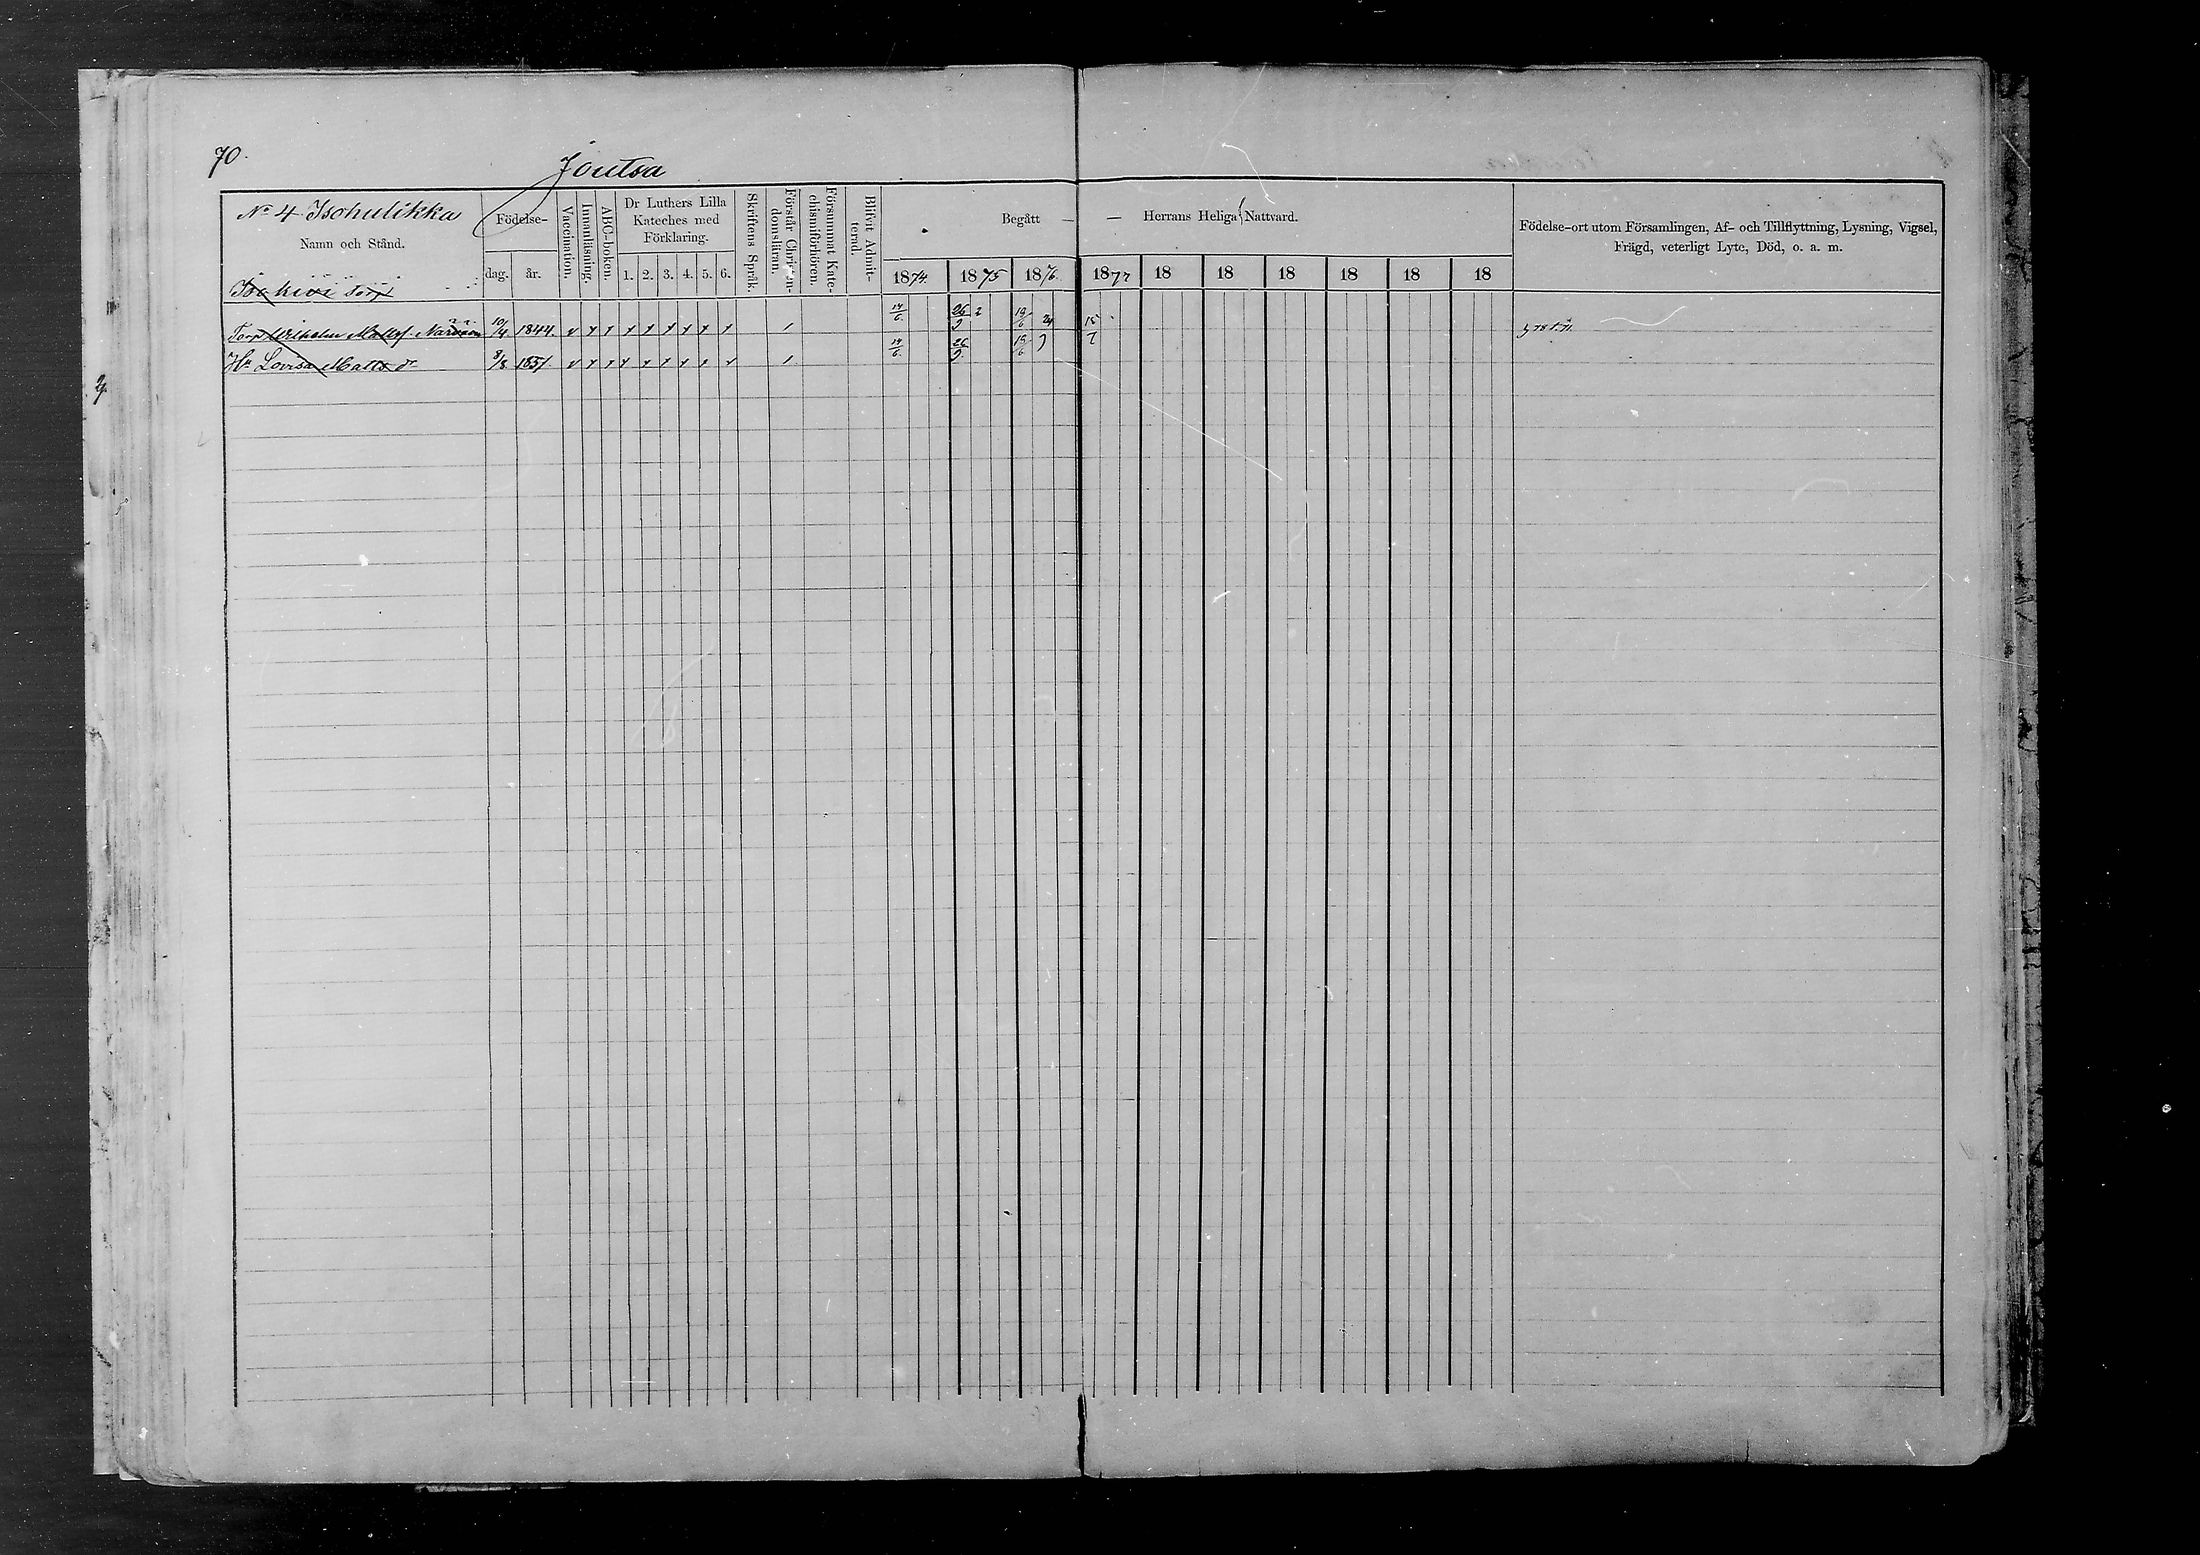 70.
Joutsa
No 4 Isohulikka
Namn och Stånd.
Födelse-
dag. år.
Vaccination.
Innanläsning.
ABC-boken.
Dr Luthers Lilla
Kateches med
Förklaring.
1. 2. 3. 4. 5. 6.
Skriftens Språk.
Förstår Christen-
domsläran.
Försummat Kate-
chismiförhören.
Blifvit Admit-
terad.
Begått — — Herrans Heliga Nattvard.
1874. 1875 1876. 1877 18 18 18 18 18 18
Födelse-ort utom Församlingen, Af- och Tillflyttning, Lysning, Vigsel,
Frägd, veterligt Lyte, Död, o. a. m.
Isokivi Torp
Torp Wilhelm Mattss. 10/4 1844. 26/9 2 19/6 24 15
Hu Lovisa Matts dr 8/8 1851. 26/9 19/6